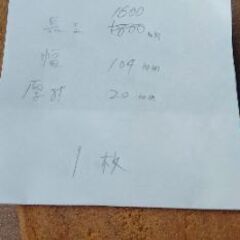 1600
長さ 1800 mm
幅 104 mm
厚サ 20 mm
1 枚